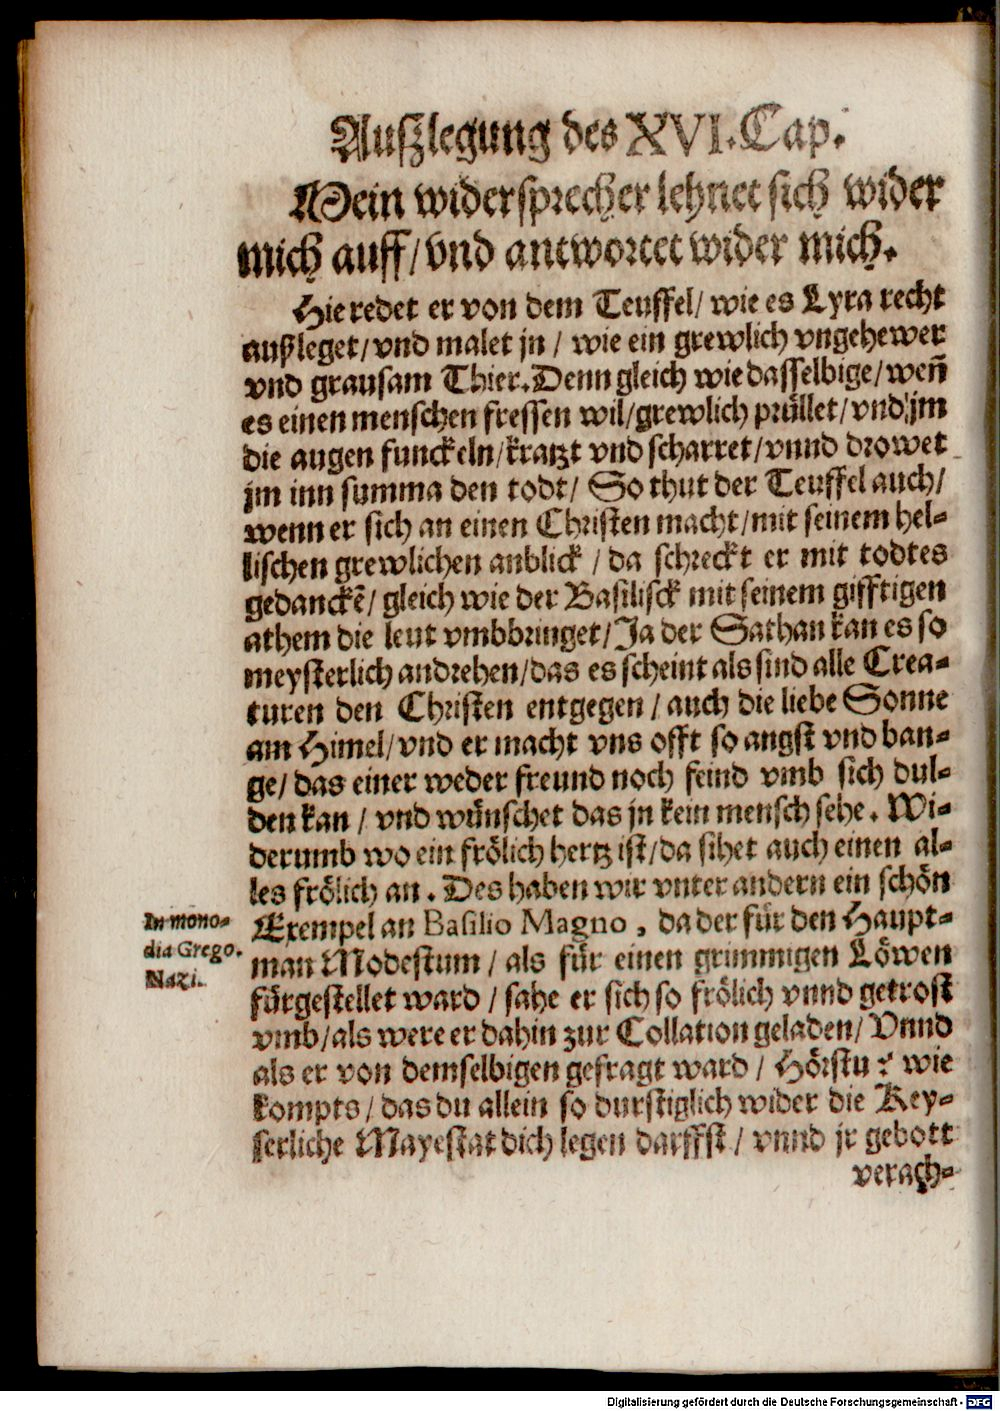 Auszlegung des XVI. Cap.
Mein widersprecher lehnet sich wider
mich auff/ vnd antwortet wider mich.
Hie redet er von dem Teuffel/ wie es Lyra recht
außleget/ vnd malet jn / wie ein grewlich vngehewer
vnd grausam Thier. Denn gleich wie dasselbige/ weñ
es einen menschen fressen wil/ grewlich prüllet/ vnd jm
die augen funckeln/ kratzt vnd scharret/ vnnd drowet
jm inn summa den todt/ So thut der Teuffel auch/
wenn er sich an einen Christen macht/ mit seinem hel-
lischen grewlichen anblick / da schreckt er mit todtes
gedanckē/ gleich wie der Basilisck mit seinem gifftigen
athem die leut vmbbringet/ Ja der Sathan kan es so
meysterlich andrehen/ das es scheint als sind alle Crea-
turen den Christen entgegen / auch die liebe Sonne
am Himel/ vnd er macht vns offt so angst vnd ban-
ge/ das einer weder freund noch feind vmb sich dul-
den kan / vnd wünschet das jn kein mensch sehe. Wi-
derumb wo ein frölich hertz ist/ da sihet auch einen al-
les frölich an. Des haben wir vnter andern ein schön
Exempel an Basilio Magno, da der für den Haupt-
man Modestum / als für einen grimmigen Löwen
fürgestellet ward / sahe er sich so frölich vnnd getrost
vmb/ als were er dahin zur Collation geladen/ Vnnd
als er von demselbigen gefragt ward / Hörstu ? wie
kompts / das du allein so durstiglich wider die Key-
serliche Mayestat dich legen darffst / vnnd jr gebott
verach-
In mono-
dia Grego.
Nazi.
Digitalisierung gefördert durch die Deutsche Forschungsgemeinschaft - DFG